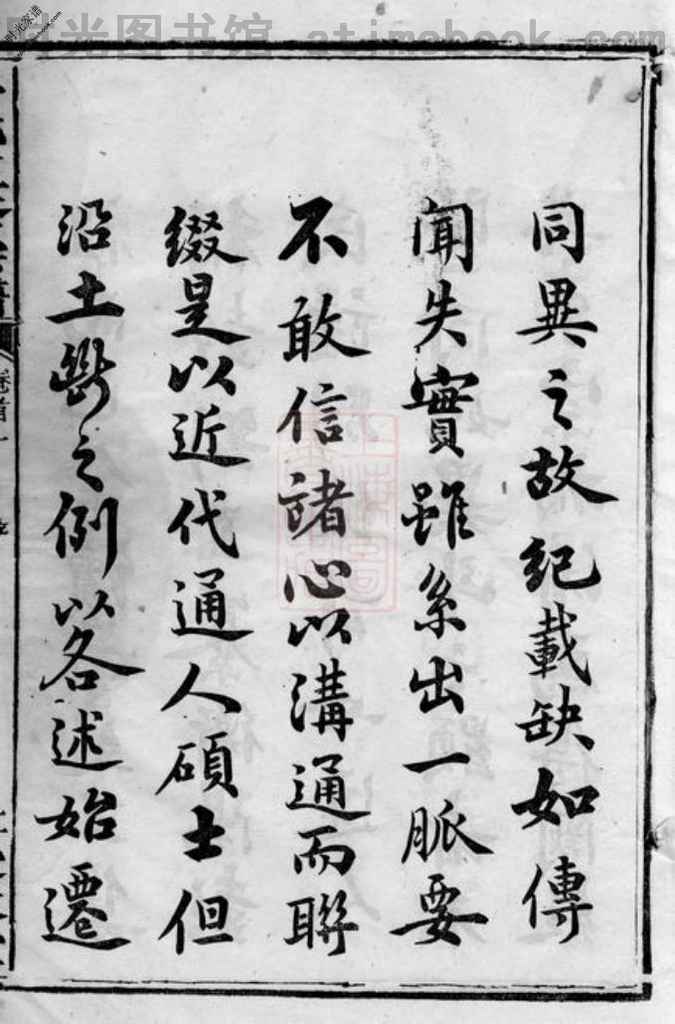 时光图书馆 atimebook.com
同異之故紀載缺如傳
聞失實雖系出一脈要
不敢信諸心以溝通而聯
綴是以近代通人碩士但
沿土斷之例以各述始遷